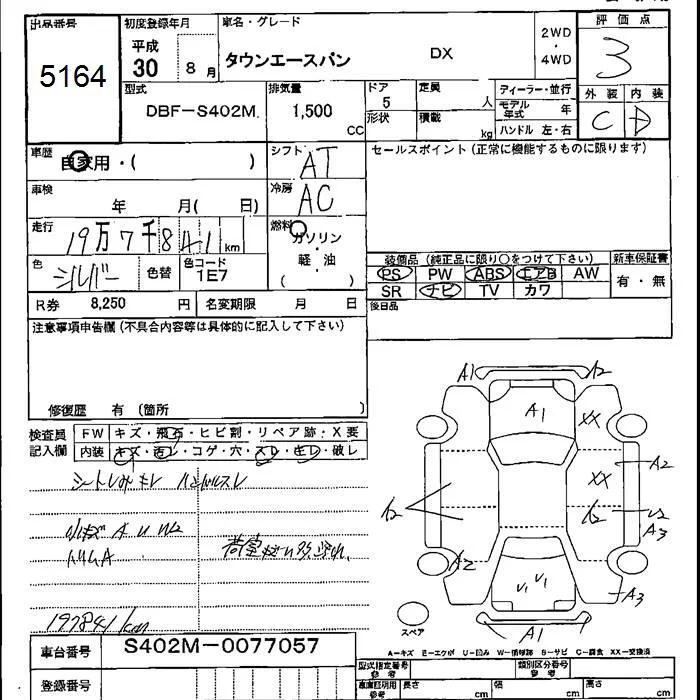 出品番号
5164
初度登録年月
平成
30 8月
車名・グレード
タウンエースバン DX
2WD
・
4WD
評価点
3
外装 内装
C D
型式
DBF-S402M
排気量
1,500
CC
ドア
5
形状
定員
人
積載
kg
ディーラー・並行
モデル年式 年
ハンドル 左・右
車歴
自家用・( )
シフト
AT
セールスポイント(正常に機能するものに限ります)
車検
年 月( 日)
冷房
AC
走行
19万7千841km
燃料
ガソリン
・
軽・油
( )
色
シルバー
色替
色コード
1E7
装備品 (純正品に限り○をつけて下さい)
新車保証書
PS PW ABS エアB AW
SR ナビ TV カワ
有・無
後日品
R券 8,250 円
名変期限 月 日
注意事項申告欄(不具合内容等は具体的に記入して下さい)
修復歴 有 (箇所 )
検査員記入欄
FW キズ・飛石・ヒビ割・リペア跡・X要
内装 キズ・汚レ・コゲ・穴・スレ・キレ・破レ
シートしみキレ ハンドルスレ
小キズ A U W2
197841km
A1 A2
A1
XX
XX
A2
A2
A2
U2
A3
A2
V1 V1
A3
A1
スペア
A-キズ E-エクボ U-凹み W-補修跡 S-サビ C-腐食 XX-交換済
車台番号 S402M-0077057
登録番号
型式指定番号
参考
類別区分番号
参考
車庫証明用
参考
長さ cm
幅 cm
高さ cm